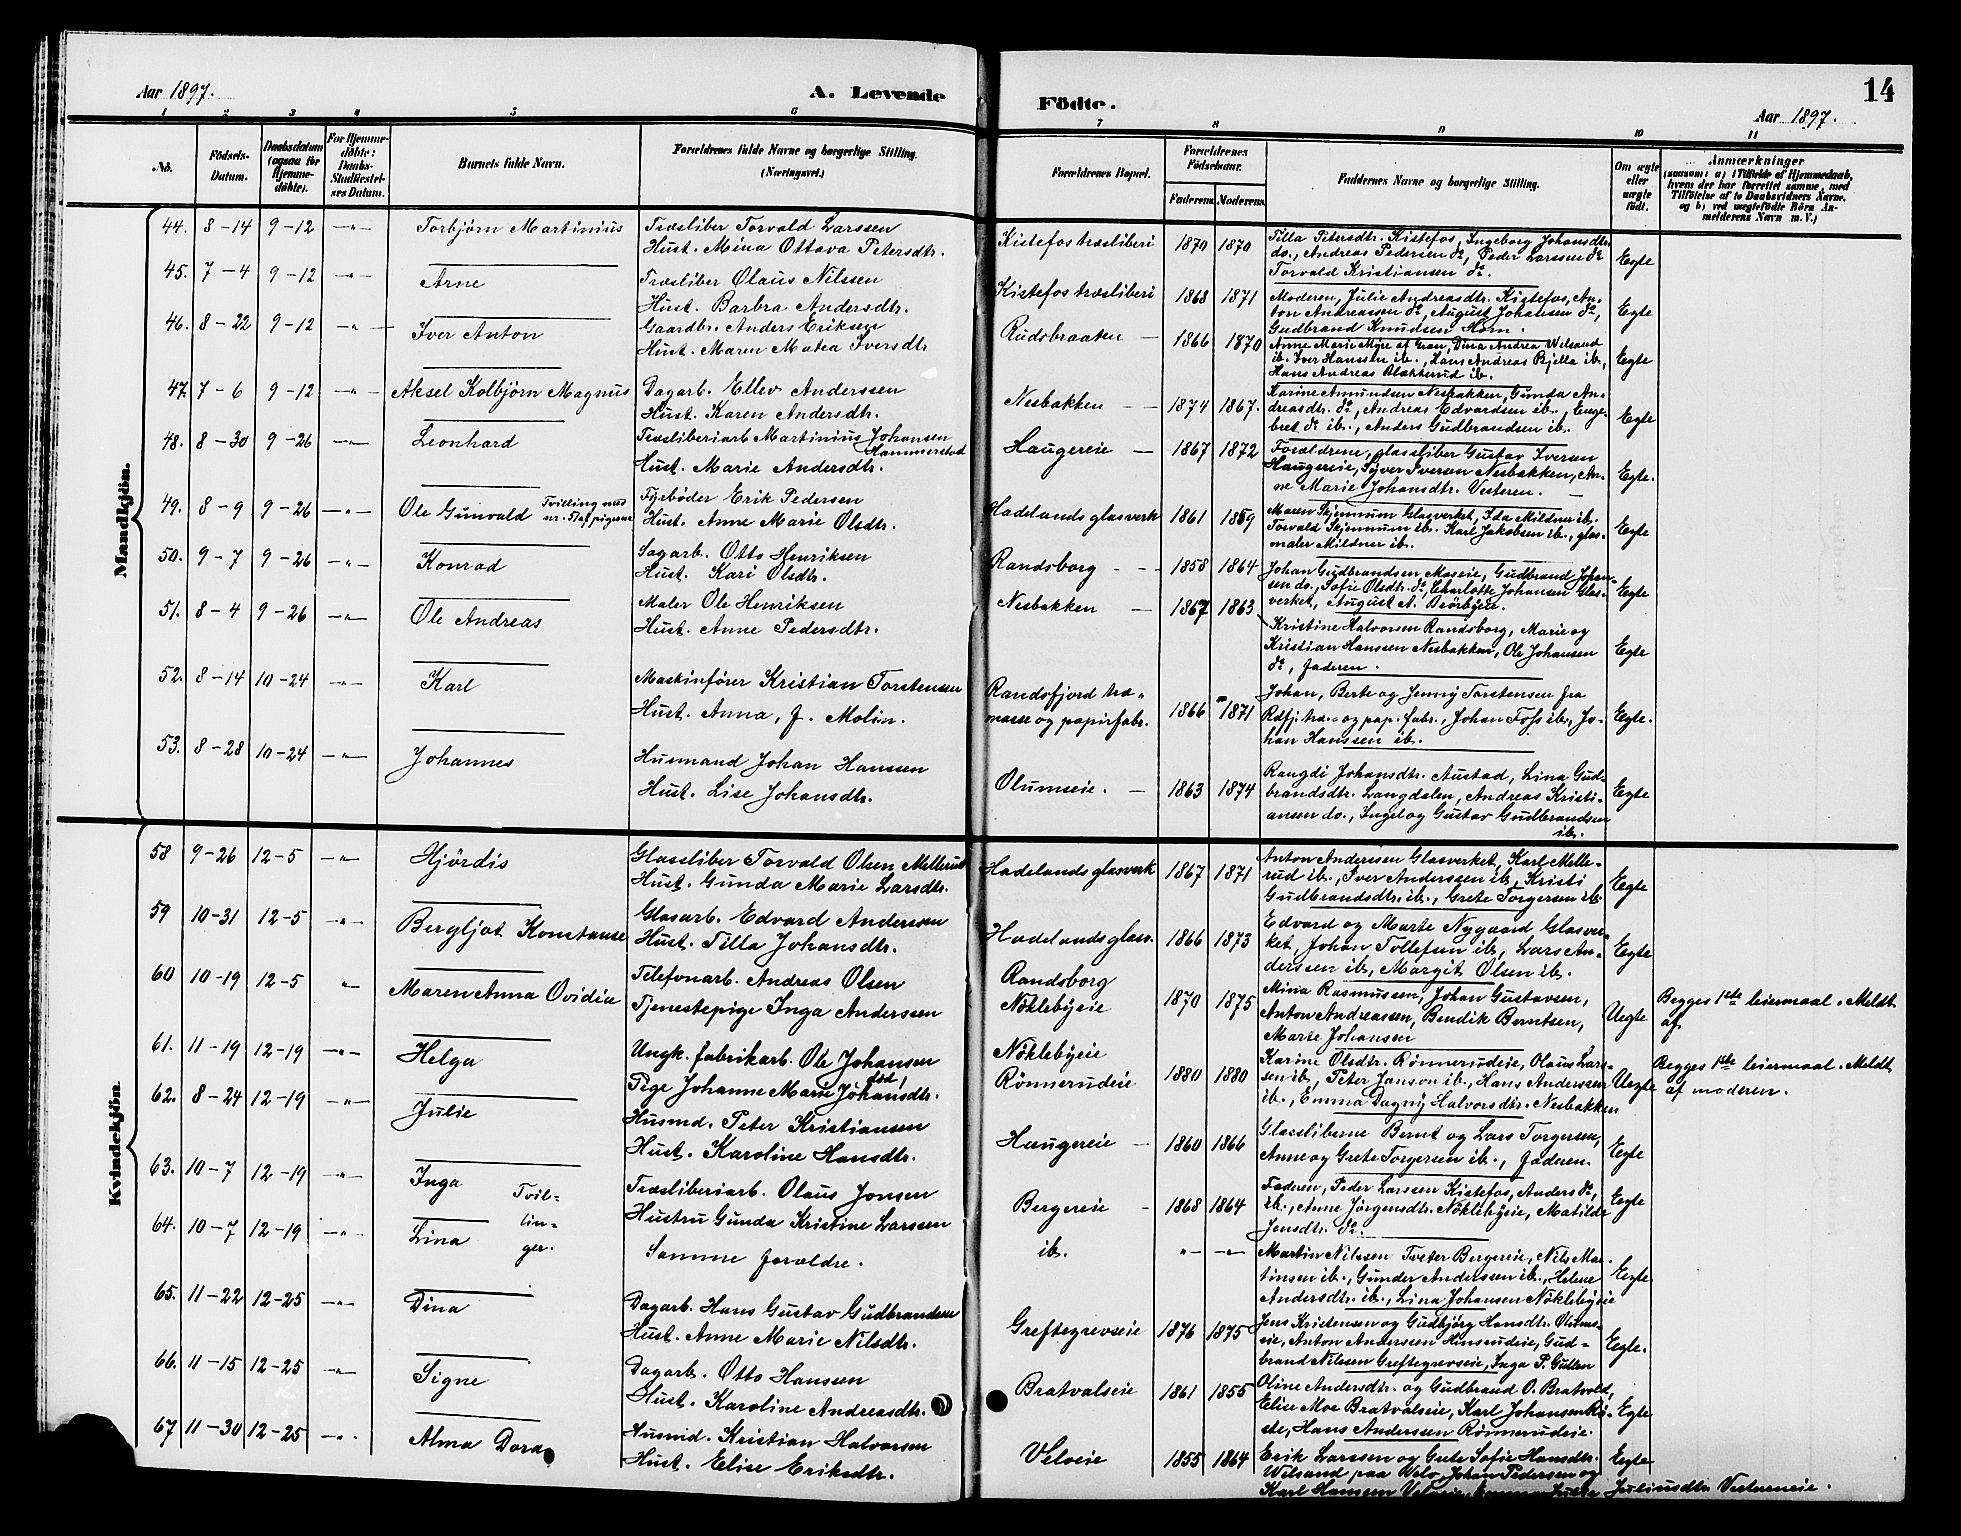 Aar 1897.
A. Levende
Födte.
Aar 1897.
14
1 2 3 4 5 6 7 8 9 10 11
No.
Födsels-
Datum.
Daabsdatum
(ogsaa for
Hjemme-
döbte).
For Hjemme-
döbte:
Daabs-
Stadfæstel-
ses Datum.
Barnets fulde Navn.
Forældrenes fulde Navne og borgerlige Stilling.
(Næringsvei.)
Forældrenes Bopæl.
Forældrenes
Födselsaar.
Faderens. Moderens.
Faddernes Navne og borgerlige Stilling.
Om ægte
eller
uægte
født.
Anmærkninger
(saasom: a) i Tilfælde af Hjemmedaab,
hvem der har forrettet samme, med
Tilföielse af to Daabsvidners Navne,
og b) ved uægtefödte Börn An-
melderens Navn m. V.)
Mandkjön.
44. 8-14 9-12 -„- Torbjørn Martinius
Træsliber Torvald Larssen
Hust. Mina Ottava Petersdtr.
Kistefos træsliberi 1870 1870
Tilla Petersdtr. Kistefos, Ingeborg Johansdtr.
do., Andreas Pedersen do, Peder Larssen do
Torvald Kristiansen do.
Egte
45. 7-4 9-12 -„- Arne
Træsliber Olaus Nilssen
Hust. Barbra Andersdtr.
Kistefos træsliberi 1868 1871
Moderen, Julie Andreasdtr. Kistefos, An-
ton Andreassen do, August Johansen do,
Gudbrand Knudsen Horn.
Egte
46. 8-22 9-12 -„- Iver Anton
Gaardbr. Anders Eriksen
Hust. Maren Matea Iversdtr
Rudsbraaten - 1866 1870
Anne Marie Myre af Gran, Dina Andrea Wilsand
ib. Iver Hanssen ib., Hans Andreas Bjella ib,
Hans Andreas Blækkerud ib.
Egte
47. 7-6 9-12 -„- Aksel Kolbjörn Magnus
Dagarb. Ellev Anderssen
Hust. Karen Andersdtr.
Nesbakken - 1874 1867.
Karine Amundsen Nesbakken, Gunda An-
dreasdtr. do, Andreas Edvardsen ib., Enge-
bret do ib., Anders Gudbrandsen ib.
Egte
48. 8-30 9-26 -„- Leonhard
Træsliberiarb Martinius Johansen
Hammerstad
Hust. Marie Andersdtr.
Haugereie - 1867 1872
Forældrene, glassliber Gustav Iversen
Haugereie, Syver Iversen Nesbakken, An-
ne Marie Johansdtr. Vesteren.
Egte.
49. 8-9 9-26 -„- Ole Gunvald Tvilling med
nr. 51 af pigerne
Fyrbøder Erik Pedersen
Hust. Anne Marie Olsdtr.
Hadelands glasverk 1861 1859
Maren Skjennum Glasverket, Ida Mildner ib.
Torvald Skjennum ib. Karl Jakobsen ib., glas-
maler Mildner ib.
Egte
50. 9-7 9-26 -„- Konrad
Sagarb. Otto Henriksen
Hust. Kari Olsdtr.
Randsborg - 1858 1864
Johan Gudbrandsen Moseie, Gudbrand Johan-
sen do. Sofie Olsdtr. do, Charlotte Johansen Glas-
verket, August A. Brörbyeie.
Egte
51. 8-4 9-26 -„- Ole Andreas
Maler Ole Henriksen
Hust. Anne Pedersdtr.
Nesbakken - 1867 1863
Kristine Halvorsen Randsborg, Marie og
Kristian Hanssen Nesbakken, Ole Johansen
do, faderen.
Egte
52. 8-14 10-24 -„- Karl
Maskinfører Kristian Torstensen
Hust. Anna, f. Molin.
Randsfjord træ-
masse og papirfabr. 1866 1871
Johan, Berte og Jenny Torstensen fra
Rdfj. træ- og pap. fabr., Johan Foss ib., Jo-
han Hanssen ib.
Egte.
53. 8-28 10-24 -„- Johannes
Husmand Johan Hanssen
Hust. Lise Johansdtr.
Olumseie. - 1863 1874
Rangdi Johansdtr. Austad, Lina Gud-
brandsdtr. Langdalen, Andreas Kristi-
ansen do., Ingel og Gustav Gudbrandsen
ib.
Egte
Kvindekjön.
58 9-26 12-5 -„- Hjördis
Glassliber Torvald Olsen Mellerud
Hust. Gunda Marie Larsdtr.
Hadelands glasverk 1867 1871
Anton Anderssen Glasverket, Karl Melle-
rud ib., Iver Anderssen ib., Kristi
Gudbrandsdtr. ib., Grete Torgersen ib.
Egte
59 10-31 12-5 -„- Bergljot Konstanse
Glasarb. Edvard Anderssen
Hust. Tilla Johansdtr.
Hadelands glasv. 1866 1873
Edvard og Marte Nygaard Glasver-
ket, Johan Tollefsen ib., Lars An-
derssen ib., Margit Olsen ib.
Egte
60 10-19 12-5 „ Maren Anna Ovidia
Telefonarb. Andreas Olsen
Tjenestepige Inga Anderssen
Randsborg
Nöklebyeie 1870 1875
Mina Rasmussen, Johan Gustavsen,
Anton Andreassen, Bendik Berntsen,
Marte Johansen
Uegte
Begges 1ste leiermaal. Meldt
af
61. 11-19 12-19 -„- Helga
Ungk. fabrikarb. Ole Johansen
Pige Johanne Marie Johansdtr.
Nöklebyeie
Rønnerudeie 1880 1880
Karine Olsdtr. Rønnerudeie, Olaus Lars-
sen ib., Peter Janson ib., Hans Anderssen
ib., Emma Dagny Halvorsdtr. Nesbakken
Uegte
Begges 1ste leiermaal. Meldt
af moderen.
62. 8-24 12-19 -„- Julie
Husmd. Peter Kristiansen
Hust. Karoline Hansdtr.
Haugereie - 1860 1866
Glassliberne Bernt og Lars Torgersen,
Anne og Grete Torgersen ib., faderen.
Egte
63. 10-7 12-19 „ Inga Tvil-
lin-
ger.
Træsliberiarb. Olaus Jonsen
Hustru Gunda Kristine Larssen
Bergereie - 1868 1864
Faderen, Peder Larssen Kistefos, Anders do,
ib., Anne Jörgensdtr. Nöklebyeie, Matilde
Jensdtr. do.
Egte
64. 10-7 12-19 -„- Lina
Samme forældre.
ib. „- -„-
Martin Nilssen Tveter Bergereie, Nils Mar-
tinsen ib., Gunder Anderssen ib., Helene
Andersdtr. ib., Lina Johansen Nöklebyeie
Egte.
65. 11-22 12-25 -„- Dina
Dagarb. Hans Gustav Gudbrandsen
Hust. Anne Marie Nilsdtr.
Greftegrevseie 1876 1875
Jens Kristensen og Gudbjörg Hansdtr. Olums-
eie, Anton Anderssen Hinsrudeie, Gud-
brand Nilsen Greftegrevseie, Inga P. Gullen
Egte.
66. 11-15 12-25 -„- Signe
Dagarb. Otto Hanssen
Hust. Karoline Andreasdtr.
Bratvalseie 1861 1855
Oline Andersdtr. og Gudbrand O. Bratvold,
Elise Moe Bratvalseie, Karl Johansen Rø-
ste, Hans Anderssen Rönnerudeie.
Egte
67 11-30 12-25 -„- Alma Dora
Husmd. Kristian Halvorsen
Hust. Elise Eriksdtr.
Veloeie 1855 1864
Erik Larssen og Gute Sofie Hansdtr.
Wilsand paa Velo, Johan Pedersen og
Karl Hanssen Juliusdtr. Vestereneie.
Egte